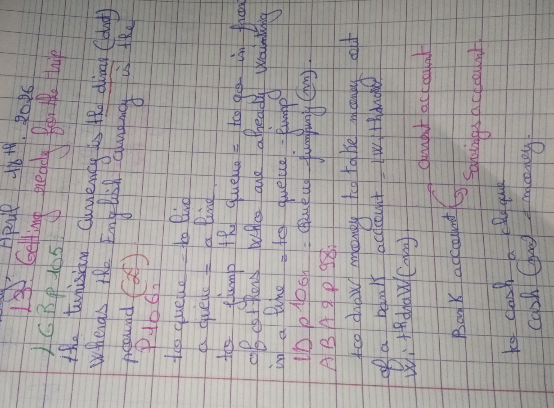 April 18th. 2026
L3: Getting ready for the trip
LGB P 105:
the tunisian currency is the dinar (dnt)
wheras the English currency is the
pound (£)
P 106:
to queue = to line
a queue = a line
to jump the queue = to go in front
of others who are already wainting
in a line = to queue-jump
: queue-jumping (nn).
ID P 106:
ABA 2 P 58:
to draw money = to take money out
of a bank account = withdraw
withdraw (nn)
Bank account current account
savings account.
to cash a cheque
cash (nn) = money.